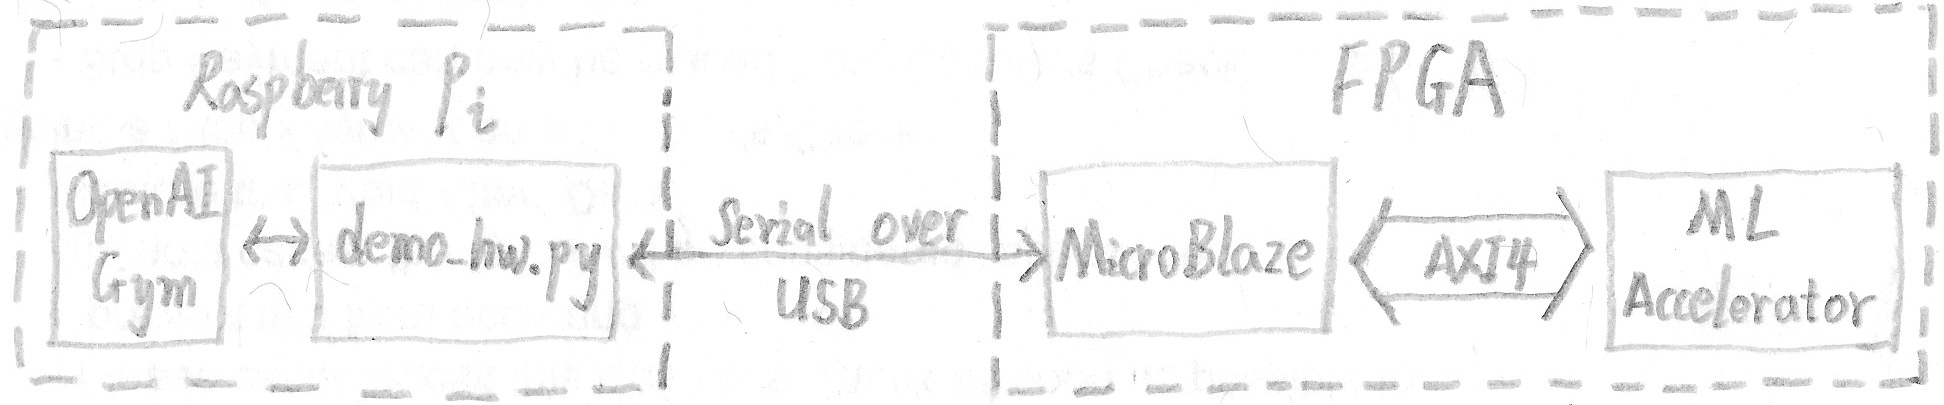 Raspberry Pi
FPGA
OpenAI
Gym
demo_hw.py
Serial over
USB
MicroBlaze
AXI4
ML
Accelerator